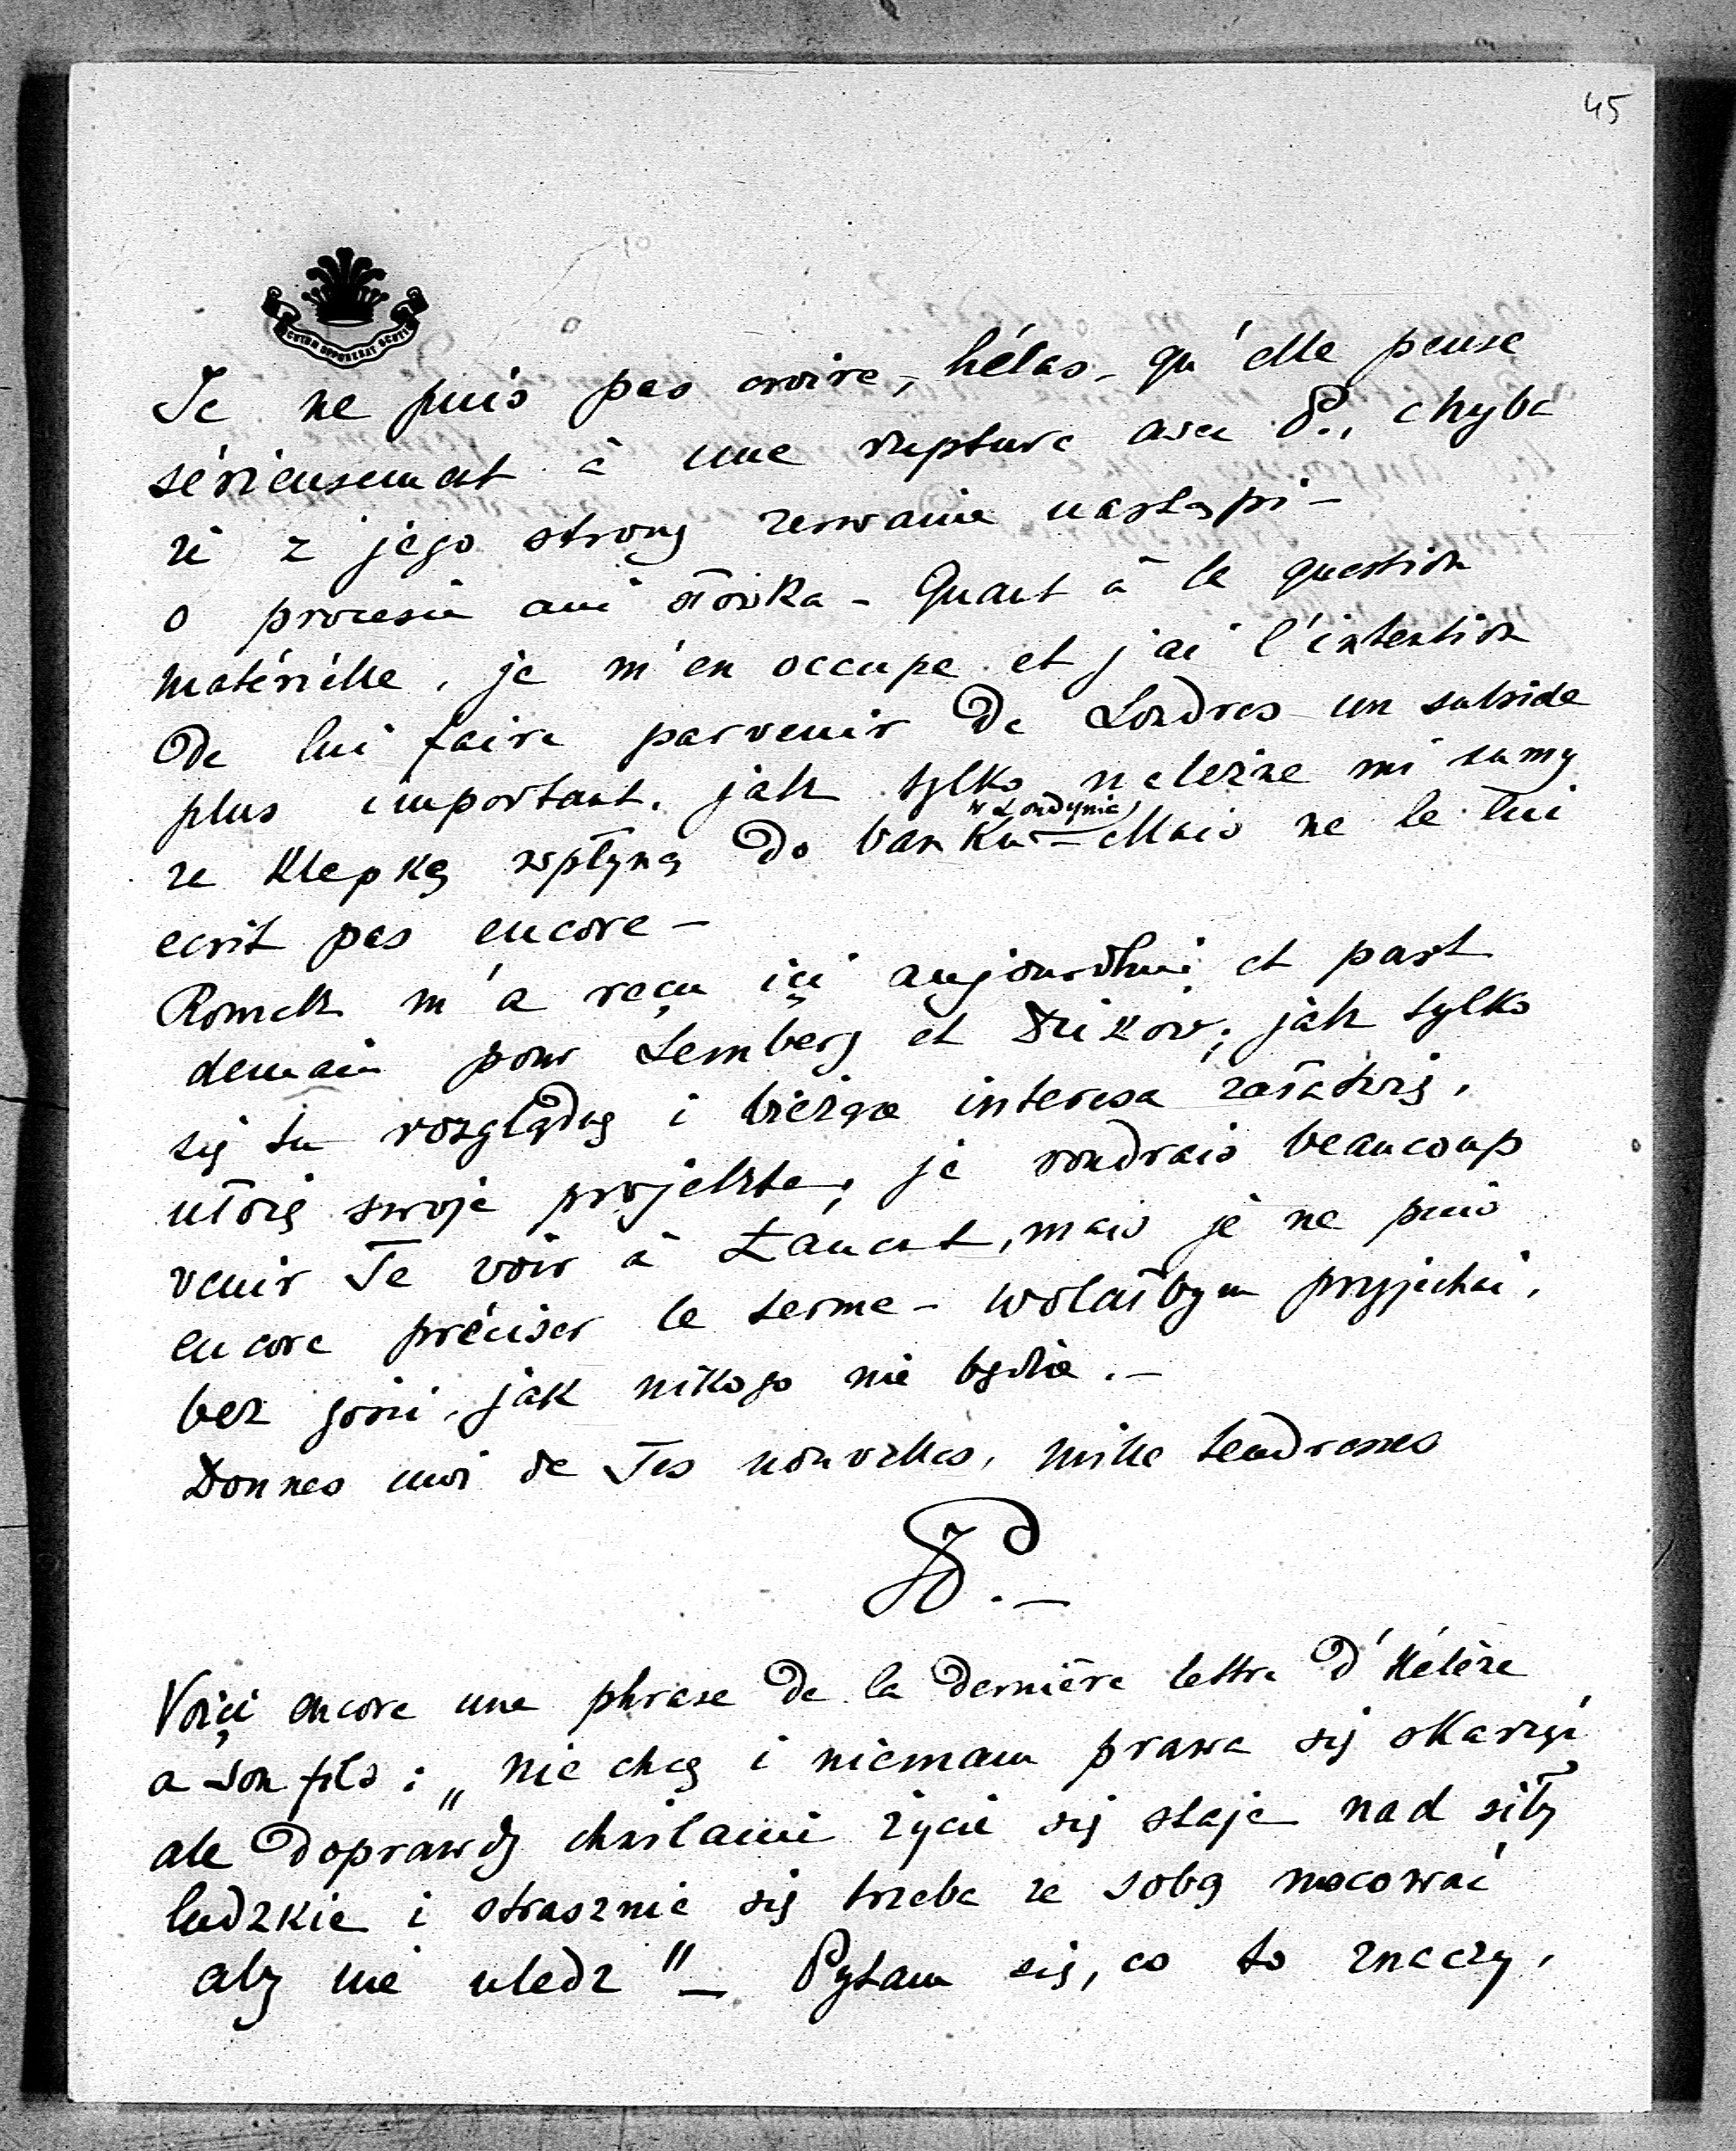 45
CUIDA OPPONEBAT SCUTI
Je ne puis pas croire, hélas - qu'elle pense
sérieusement à une rupture avec P., chyba
że z jego strony zerwanie nastąpi -
o procesie ani słówka - Quant à la question
matérielle, je m'en occupe et j'ai l'intention
de lui faire parvenir de Londres un subside
plus important, jak tylko należne mi sumy
w Londynie
ze Klepkę wpłyną do banku - Mais ne le lui
ecrit pas encore -
Romek m'a reçu içi aujourdhui et part
demain pour Lemberg et Dzików; jak tylko
się tu rozglądnę i bieżące interesa załatwię,
ułożę swoje projekta, je voudrais beaucoup
venir Te voir à Łańcut, mais je ne puis
encore préciser le terme - wolałbym przyjechać,
bez gości, jak nikogo nie będzie. -
Donnes moi de Tes nouvelles, mille tendresses
Voiçi encore une phrase de la dernière lettre d'Hélène
a son fils : „nie chcę i niemam prawa się skarżyć
ale doprawdy chwilami życie się staje nad siły
ludzkie i strasznie się trzeba ze sobą mocować
aby nie uledz" - Pytam się, co to znaczy,